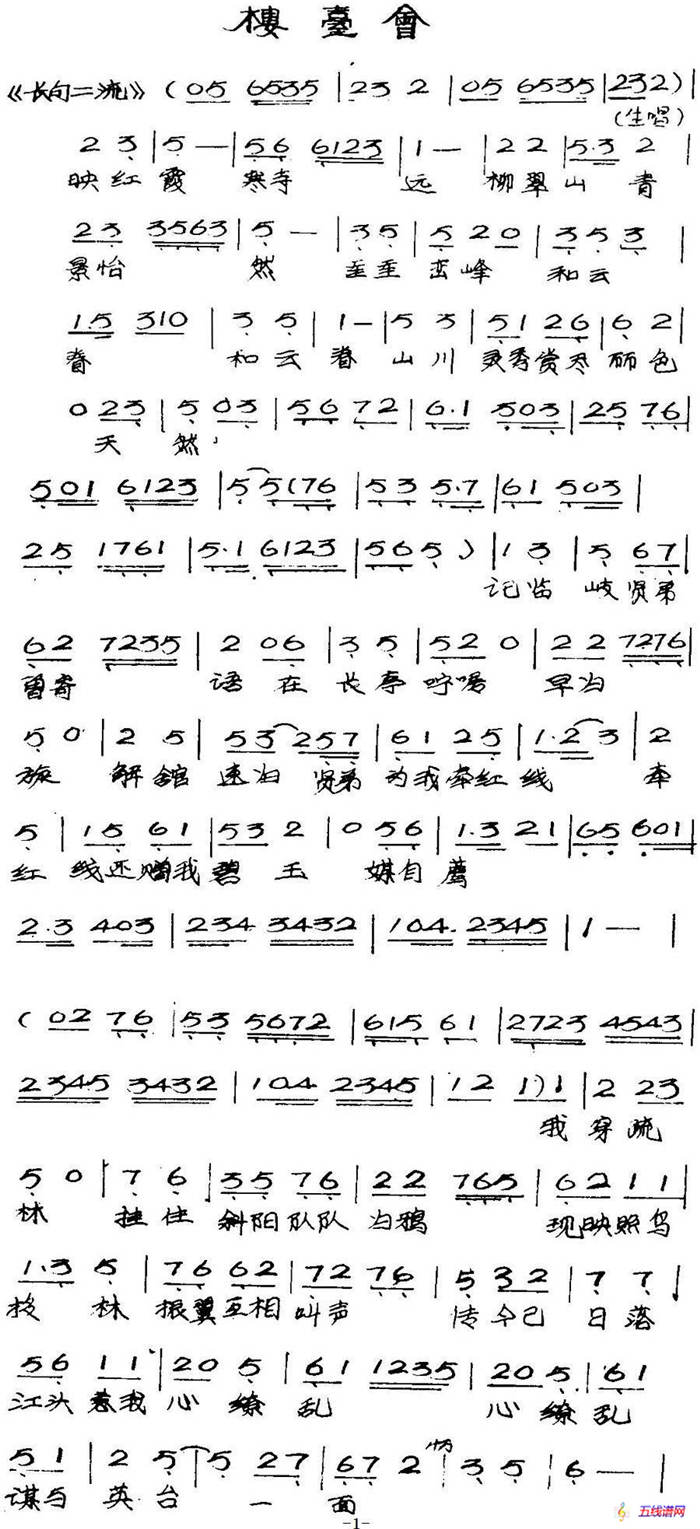 樓臺會
《长句二流》 ( 05 6535 | 23 2 | 05 6535 | 232 ) |
(生唱)
2 3 | 5 — | 56 6123 | 1 — | 22 | 5·3 2 |
映红霞 寒寺 远 柳翠山 青
23 3563 | 5 — | 35 | 5 20 | 353 |
景怡 然 峦峰 和云
1·5 310 | 3 5 | 1 — | 5 3 | 51 26 | 6 2 |
眷 和云眷 山川 灵秀赏尽丽色
0 23 | 5 03 | 56 72 | 6·1 503 | 25 76 |
天 然,
501 6123 | 5 5(76 | 53 5·7 | 61 503 |
25 1761 | 5·1 6123 | 565 ) | 1 3 | 5 67 |
记临 歧贤弟
62 7235 | 2 06 | 3 5 | 52 0 | 22 7276 |
曾寄 语在长亭咛嘱 早归
5 0 | 2 5 | 53 257 | 61 25 | 1·2 3 | 2
旋 解馆 速归 贤弟 为我牵红线 牵
5 | 15 61 | 53 2 | 0 56 | 1·3 21 | 65 601 |
红 线还赠我碧 玉 媒自荐
2·3 403 | 234 3432 | 104· 2345 | 1 — |
( 02 76 | 53 5672 | 615 61 | 2723 4543 |
2345 3432 | 104· 2345 | 12 1) 1 | 2 23
我 穿疏
5 0 | 7 6 | 35 76 | 22 765 | 62 11 |
林 挂住 斜阳队队 白鸦 现映照鸟
1·3 5 | 76 62 | 72 76 | 5 32 | 7 7 |
投 林 振翼互相 叫声 传今已 日落
56 11 | 20 5 | 61 1235 | 20 5 | 61
江头惹我 心 缭乱 心 缭乱
51 | 2 5 | 5 27 | 67 2 | 3 5 | 6 — |
谋与 英台 一 面
-1-
五线谱网